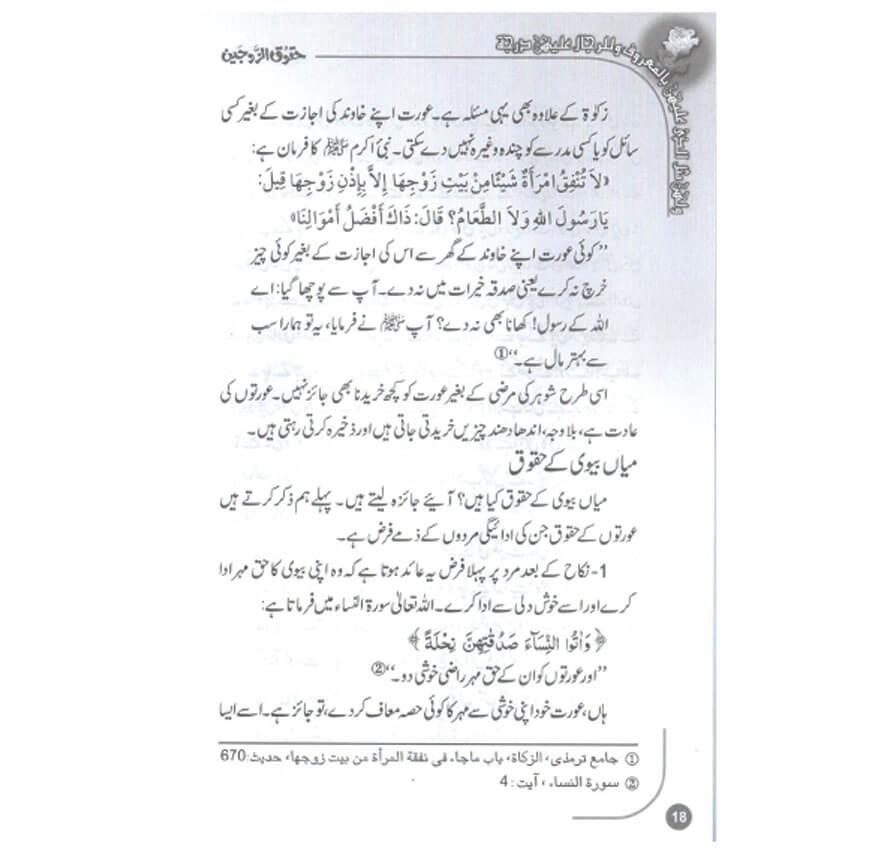 حقوق الزوجین
ولهن مثل الذی علیهن بالمعروف وللرجال علیهن درجة
زکوٰۃ کے علاوہ بھی یہی مسئلہ ہے۔ عورت اپنے خاوند کی اجازت کے بغیر کسی
سائل کو یا کسی مدرسے کو چندہ وغیرہ نہیں دے سکتی۔ نبیٔ اکرم ﷺ کا فرمان ہے:
«لاَ تُنْفِقُ امْرَأَةٌ شَيْئًا مِنْ بَيْتِ زَوْجِهَا إِلاَّ بِإِذْنِ زَوْجِهَا قِيلَ:
يَارَسُولَ اللهِ وَلاَ الطَّعَامُ؟ قَالَ: ذَاكَ أَفْضَلُ أَمْوَالِنَا»
’’کوئی عورت اپنے خاوند کے گھر سے اس کی اجازت کے بغیر کوئی چیز
خرچ نہ کرے یعنی صدقہ خیرات میں نہ دے۔ آپ سے پوچھا گیا: اے
اللہ کے رسول! کھانا بھی نہ دے؟ آپ ﷺ نے فرمایا، یہ تو ہمارا سب
سے بہتر مال ہے۔‘‘①
اسی طرح شوہر کی مرضی کے بغیر عورت کو کچھ خریدنا بھی جائز نہیں۔ عورتوں کی
عادت ہے، بلاوجہ، اندھا دھند چیزیں خریدتی جاتی ہیں اور ذخیرہ کرتی رہتی ہیں۔
میاں بیوی کے حقوق
میاں بیوی کے حقوق کیا ہیں؟ آیئے جائزہ لیتے ہیں۔ پہلے ہم ذکر کرتے ہیں
عورتوں کے حقوق جن کی ادائیگی مردوں کے ذمے فرض ہے۔
1- نکاح کے بعد مرد پر پہلا فرض یہ عائد ہوتا ہے کہ وہ اپنی بیوی کا حق مہر ادا
کرے اور اسے خوش دلی سے ادا کرے۔ اللہ تعالیٰ سورۃ النساء میں فرماتا ہے:
﴿ وَاٰتُوا النِّسَآءَ صَدُقٰتِهِنَّ نِحْلَةً ﴾
’’اور عورتوں کو ان کے حق مہر راضی خوشی دو۔‘‘②
ہاں، عورت خود اپنی خوشی سے مہر کا کوئی حصہ معاف کر دے، تو جائز ہے۔ اسے ایسا
① جامع ترمذی، الزکاة، باب ماجاء فی نفقة المرأة من بیت زوجها، حدیث:670
② سورة النساء، آیت: 4
18